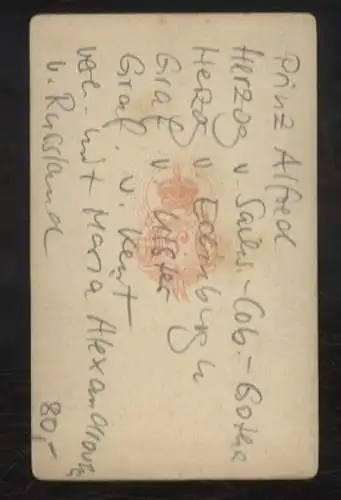 Prinz Alfred
Herzog v Sachs.-Cob.-Gotha
Herzog v Edinburgh
Graf v Ulster
Graf v. Kent
verh. mit Maria Alexandrovna
v. Russland
80,-